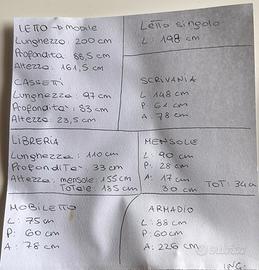 LETTO -> mobile
Lunghezza: 200 cm
Profondità: 88,5 cm
Altezza: 161,5 cm
Letto singolo
L: 198 cm
CASSETTI
Lunghezza: 97 cm
Profondità: 83 cm
Altezza: 23,5 cm
SCRIVANIA
L 148 cm
P 61 cm
A: 78 cm
LIBRERIA
Lunghezza: 110 cm
Profondità: 33 cm
Altezza: mensole: 155 cm
Totale: 185 cm
MENSOLE
L: 90 cm
P: 28 cm
A: 17 cm
30 cm TOT: 34 cm
MOBILETTO
L: 75 cm
P: 60 cm
A: 78 cm
ARMADIO
L: 88 cm
P: 60 cm
A: 226 cm